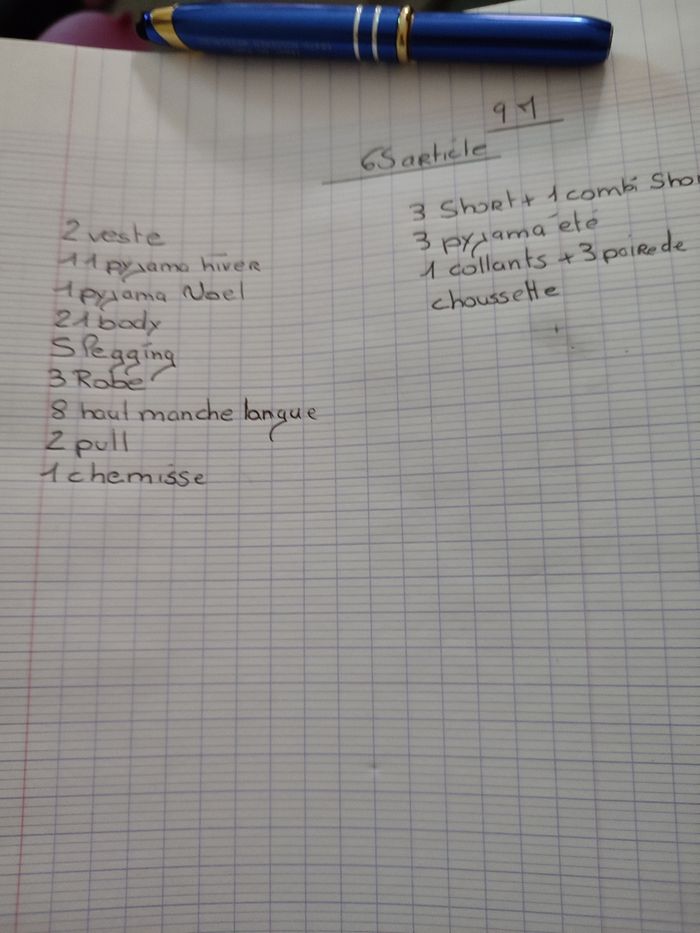 65 article
2 veste
11 pyjama hiver
1 pyjama Noel
21 body
5 legging
3 Robe
8 haut manche longue
2 pull
1 chemisse
3 Short + 1 combi Shor
3 pyjama été
1 collants + 3 paire de
choussette